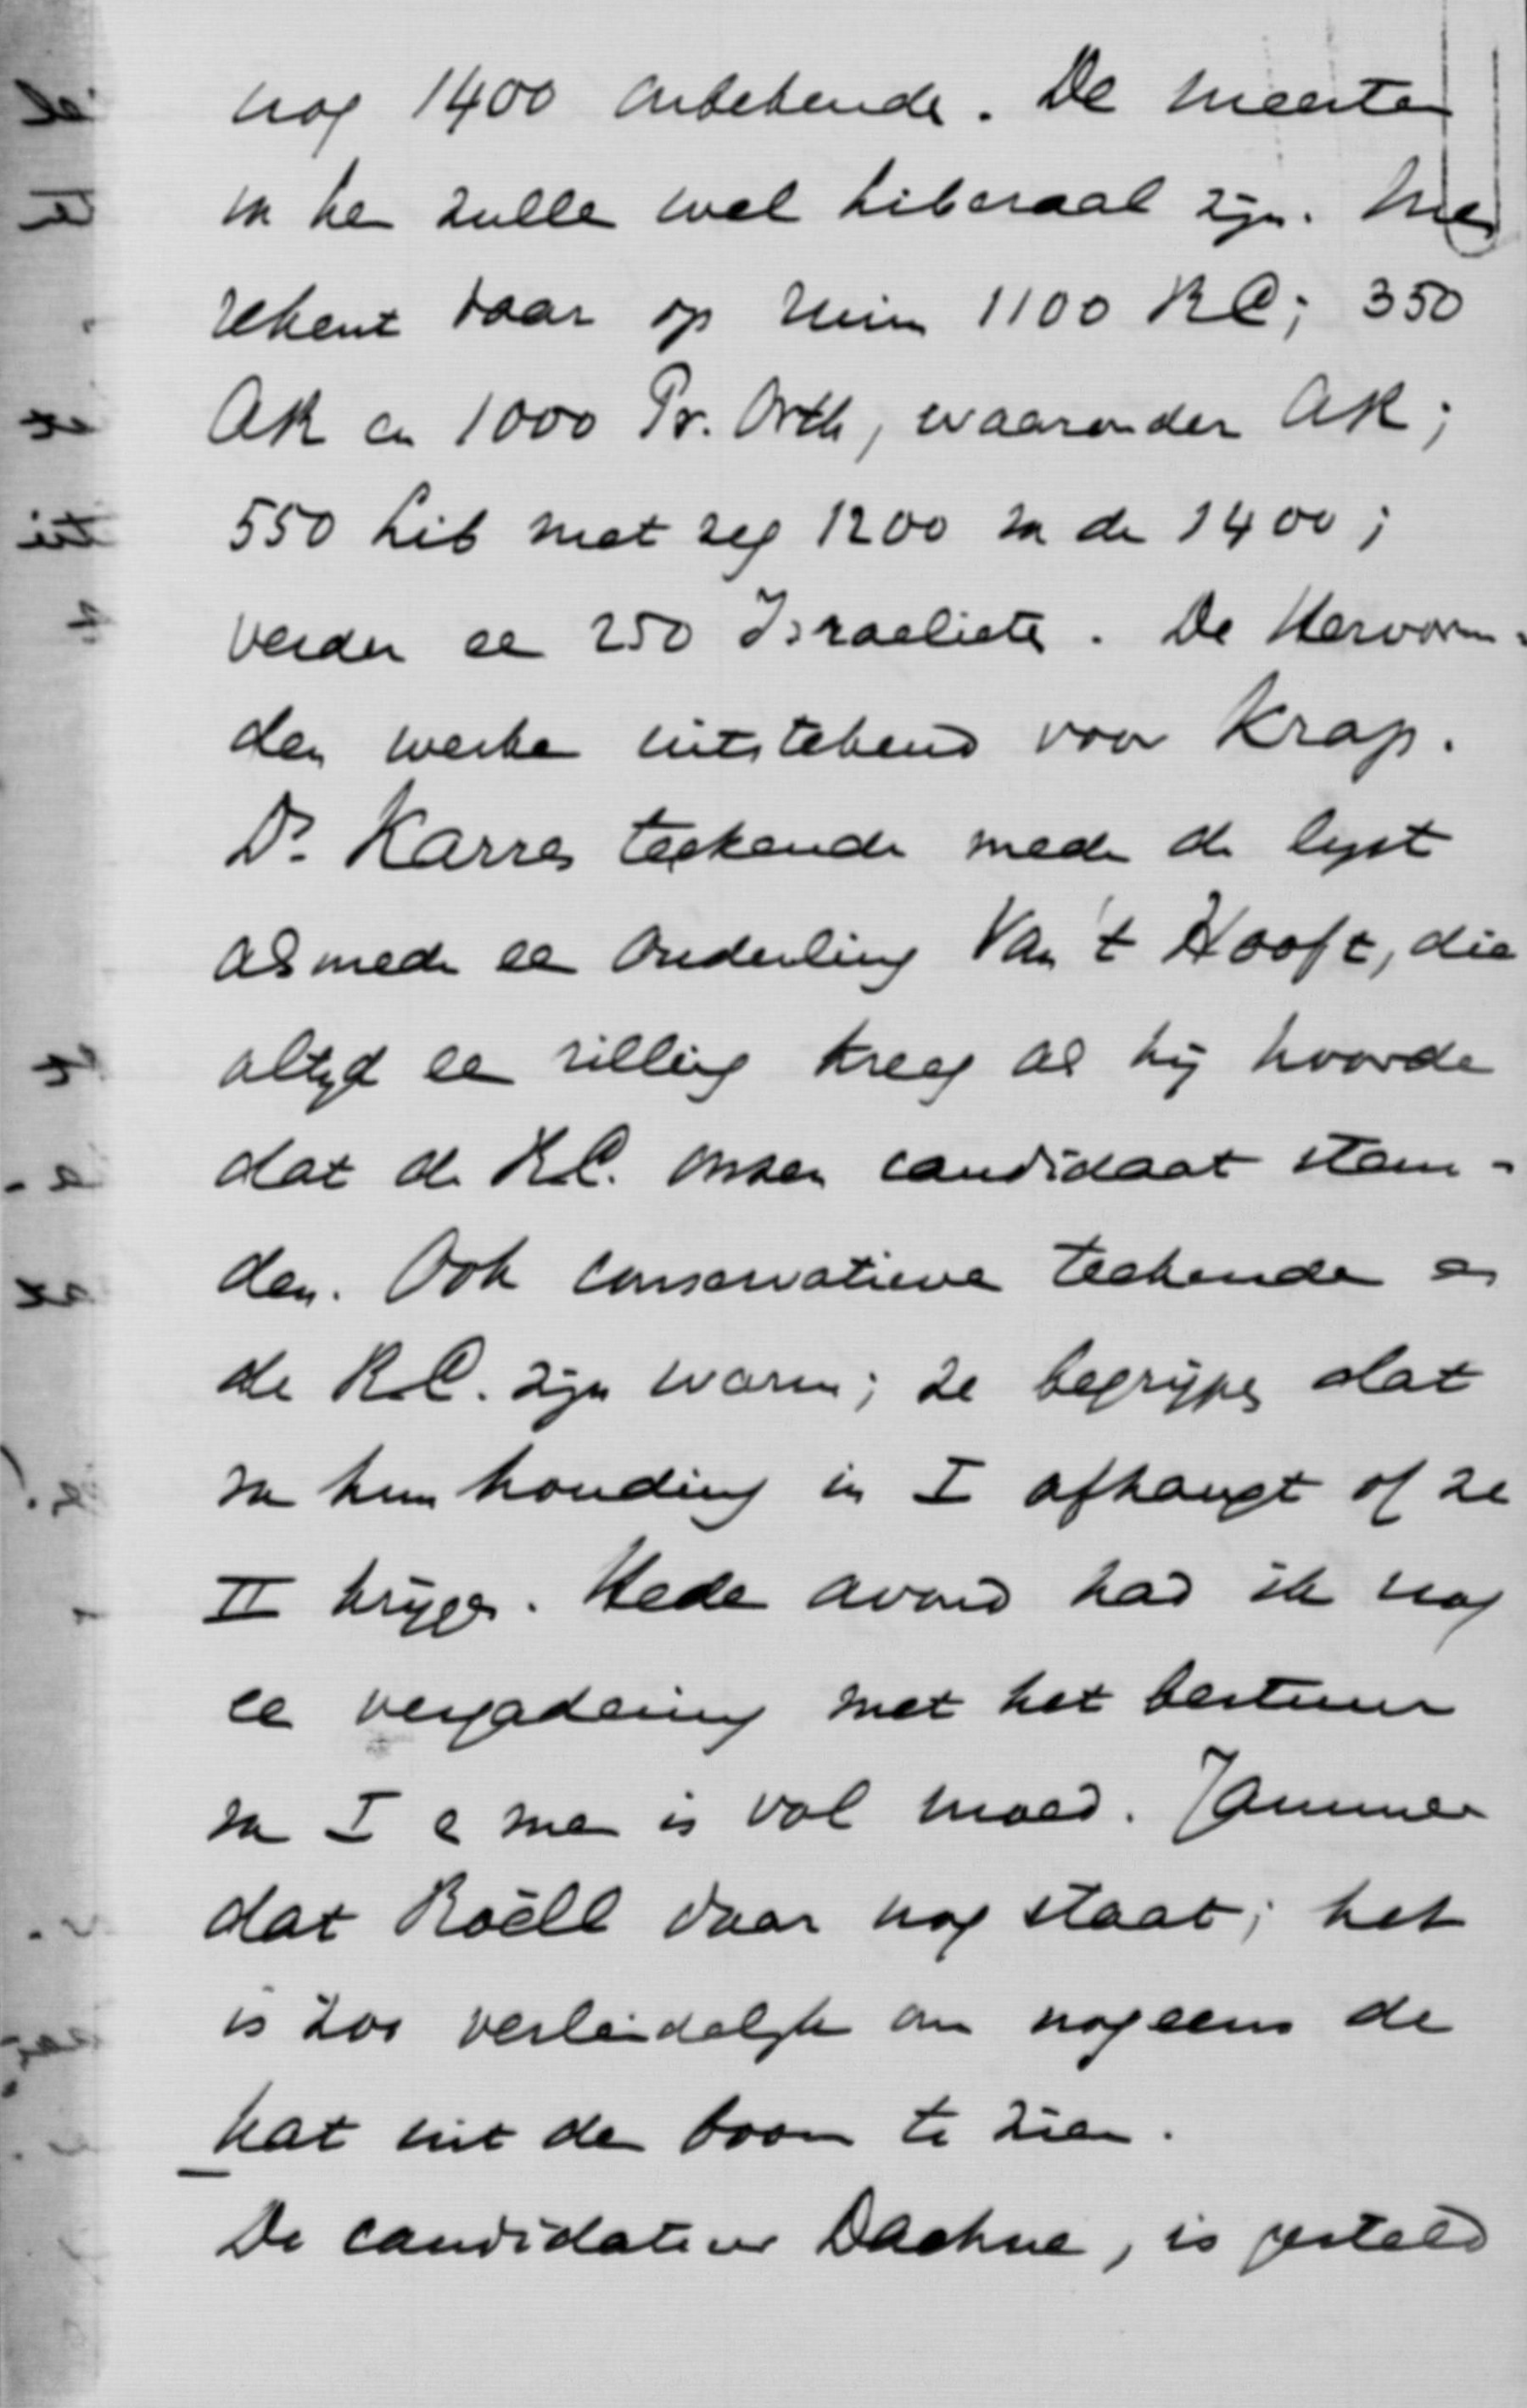 nog 1400 onbekende. De meesten
van hen zullen wel liberaal zijn. Men
rekent daar op ruim 1100 RC; 350
AR en 1000 Pr. Orth, waaronder AR;
550 Lib met zeg 1200 van de 1400;
verder een 250 Israelieten. De Hervorm-
den werken uitstekend voor Krap.
Ds. Karres teekende mede de lyst
alsmede een ouderling Van 't Hooft, die
altyd een rilling kreeg als hij hoorde
dat de R.C. onzen candidaat stem-
den. Ook conservatieven teekenden en
de R.C. zijn warm; ze begrijpen dat
van hun houding in I afhangt of ze
II krijgen. Heden avond had ik nog
een vergadering met het bestuur
van I en men is vol moed. Jammer
dat Roëll daar nog staat; het
is zoo verleidelijk om nog eens de
kat uit den boom te zien.
De candidatuur Daehne, is gesteld